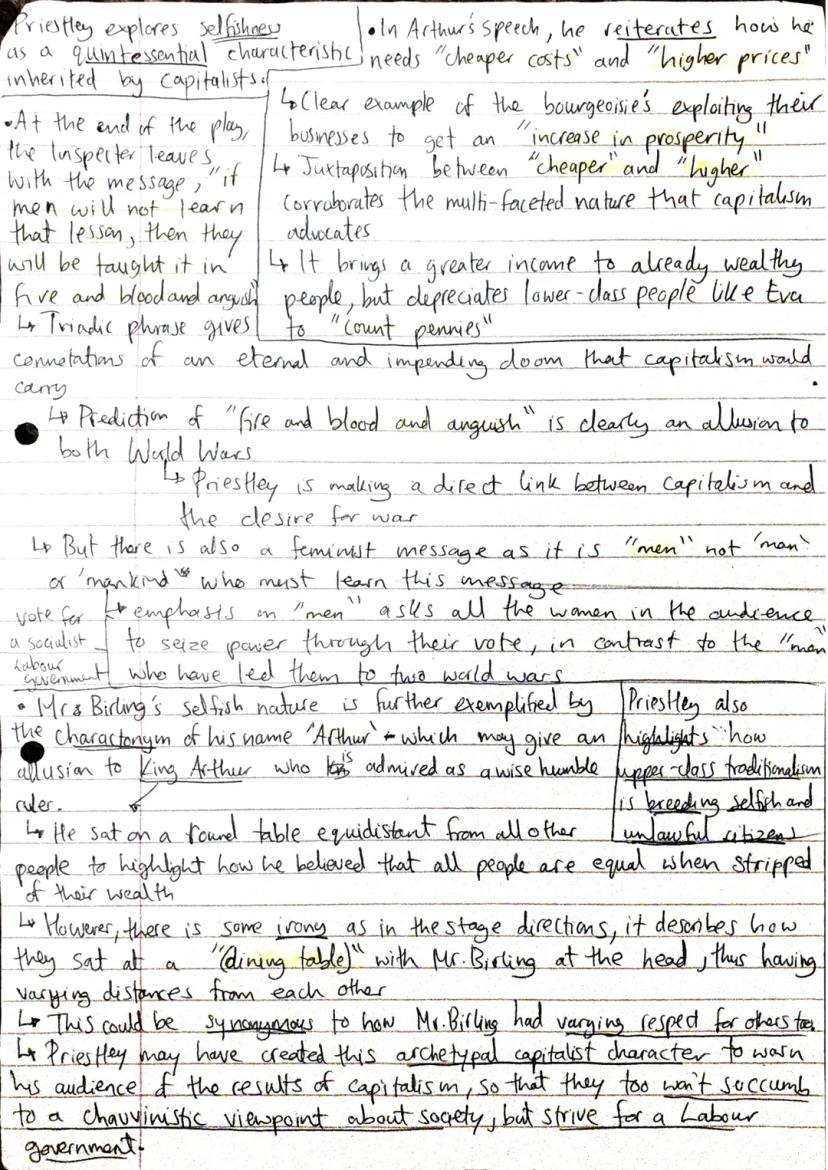 Priestley explores selfishness
as a quintessential characteristic
inherited by capitalists.
• In Arthur's speech, he reiterates how he
needs "cheaper costs" and "higher prices"
↳ Clear example of the bourgeoisie's exploiting their
businesses to get an "increase in prosperity"
↳ Juxtaposition between "cheaper" and "higher"
corroborates the multi-faceted nature that capitalism
advocates
↳ It brings a greater income to already wealthy
people, but depreciates lower-class people like Eva
to "count pennies"
• At the end of the play,
the Inspecter leaves
with the message, "if
men will not learn
that lesson, then they
will be taught it in
fire and blood and anguish
↳ Triadic phrase gives
connotations of an eternal and impending doom that capitalism would
carry
↳ Prediction of "fire and blood and anguish" is clearly an allusion to
both World Wars
↳ Priestley is making a direct link between capitalism and
the desire for war
↳ But there is also a feminist message as it is "men" not 'man'
or 'mankind' who must learn this message
↳ emphasis on "men" asks all the women in the audience
to seize power through their vote, in contrast to the "men"
who have led them to two world wars
vote for
a socialist
Labour
government
• Mr Birling's selfish nature is further exemplified by
the charactonym of his name 'Arthur' - which may give an
allusion to King Arthur who is admired as a wise humble
ruler.
↳ He sat on a round table equidistant from all other
people to highlight how he believed that all people are equal when stripped
of their wealth
Priestley also
highlights how
upper-class traditionalism
is breeding selfish and
unlawful citizens
↳ However, there is some irony as in the stage directions, it describes how
they sat at a "(dining table)" with Mr. Birling at the head, thus having
varying distances from each other
↳ This could be synonymous to how Mr. Birling had varying respect for others too.
↳ Priestley may have created this archetypal capitalist character to warn
his audience of the results of capitalism, so that they too won't succumb
to a chauvinistic viewpoint about society, but strive for a Labour
government.